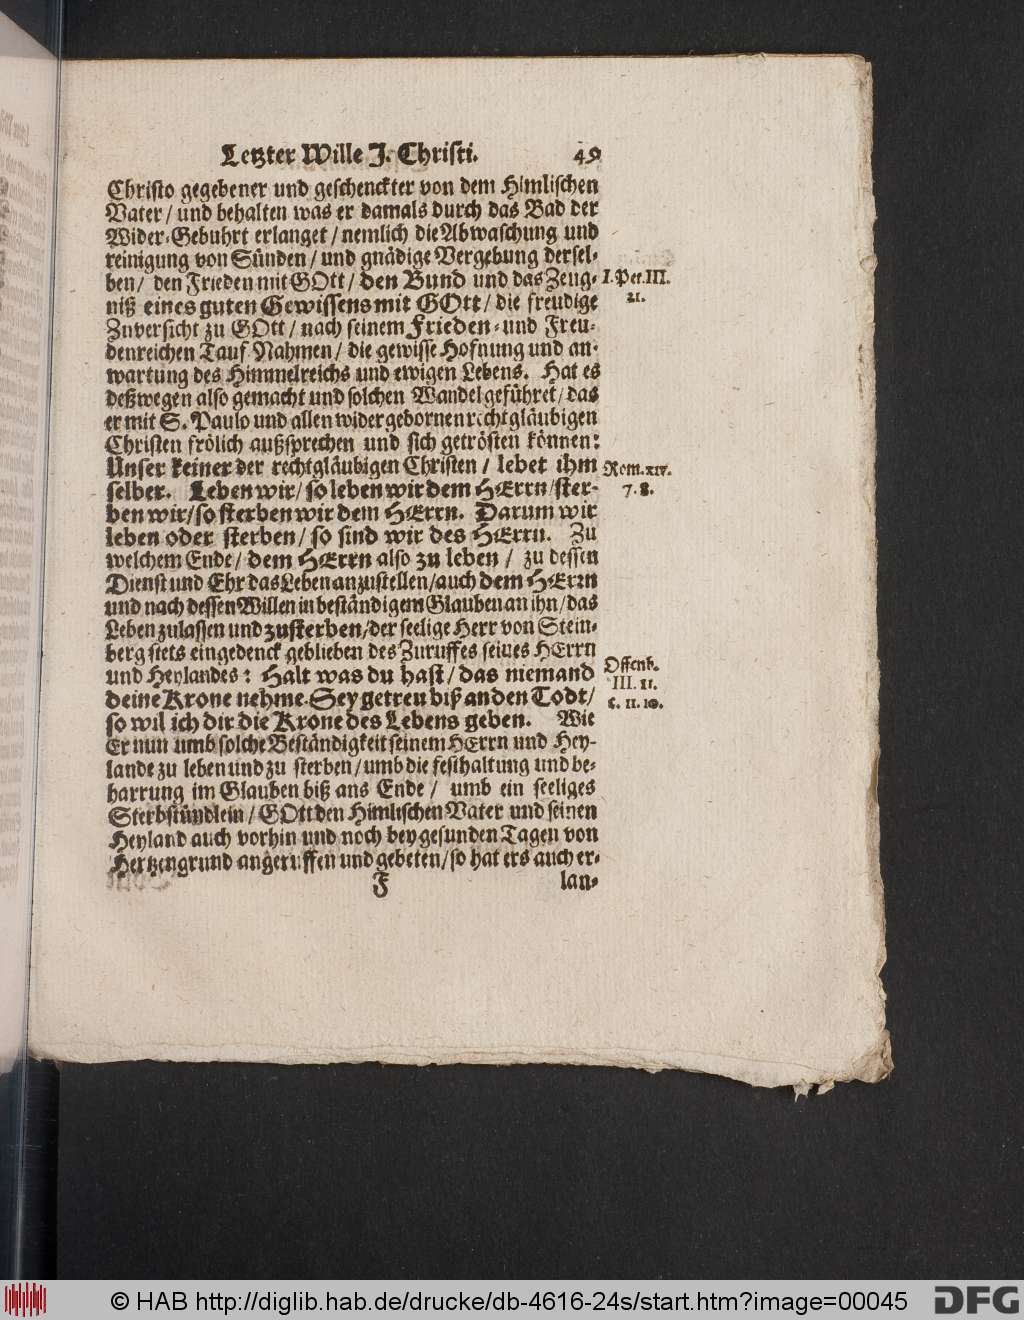 Letzter Wille J. Christi. 49
Christo gegebener und geschenckter von dem Himlischen
Vater / und behalten was er damals durch das Bad der
Wider-Gebuhrt erlanget / nemlich die Abwaschung und
reinigung von Sünden / und gnädige Vergebung dersel-
ben / den Frieden mit GOtt / den Bund und das Zeug-
niß eines guten Gewissens mit GOtt / die freudige
Zuversicht zu GOtt / nach seinem Frieden- und Freu-
denreichen Tauf-Nahmen / die gewisse Hofnung und an-
wartung des Himmelreichs und ewigen Lebens. Hat es
deßwegen also gemacht und solchen Wandel geführet / das
er mit S. Paulo und allen widergebornen rechtgläubigen
Christen frölich außsprechen und sich getrösten können:
Unser keiner der rechtgläubigen Christen / lebet ihm
selber. Leben wir / so leben wir dem HErrn / ster-
ben wir / so sterben wir dem HErrn. Darum wir
leben oder sterben / so sind wir des HErrn. Zu
welchem Ende / dem HErrn also zu leben / zu dessen
Dienst und Ehr das Leben anzustellen / auch dem HErrn
und nach dessen Willen in beständigem Glauben an ihn / das
Leben zulassen und zusterben / der seelige Herr von Stein-
berg stets eingedenck geblieben des Zuruffes seines HErrn
und Heylandes: Halt was du hast / das niemand
deine Krone nehme. Sey getreu biß an den Todt /
so wil ich dir die Krone des Lebens geben. Wie
Er nun umb solche Beständigkeit seinem HErrn und Hey-
lande zu leben und zu sterben / umb die festhaltung und be-
harrung im Glauben biß ans Ende / umb ein seeliges
Sterbstündlein / GOtt den Himlischen Vater und seinen
Heyland auch vorhin und noch bey gesunden Tagen von
Hertzengrund angeruffen und gebeten / so hat ers auch er-
F lan-
I. Pet. III.
21.
Rom. xiv.
7. 8.
Offenb.
III. 11.
c. 11. 10.
© HAB http://diglib.hab.de/drucke/db-4616-24s/start.htm?image=00045
DFG